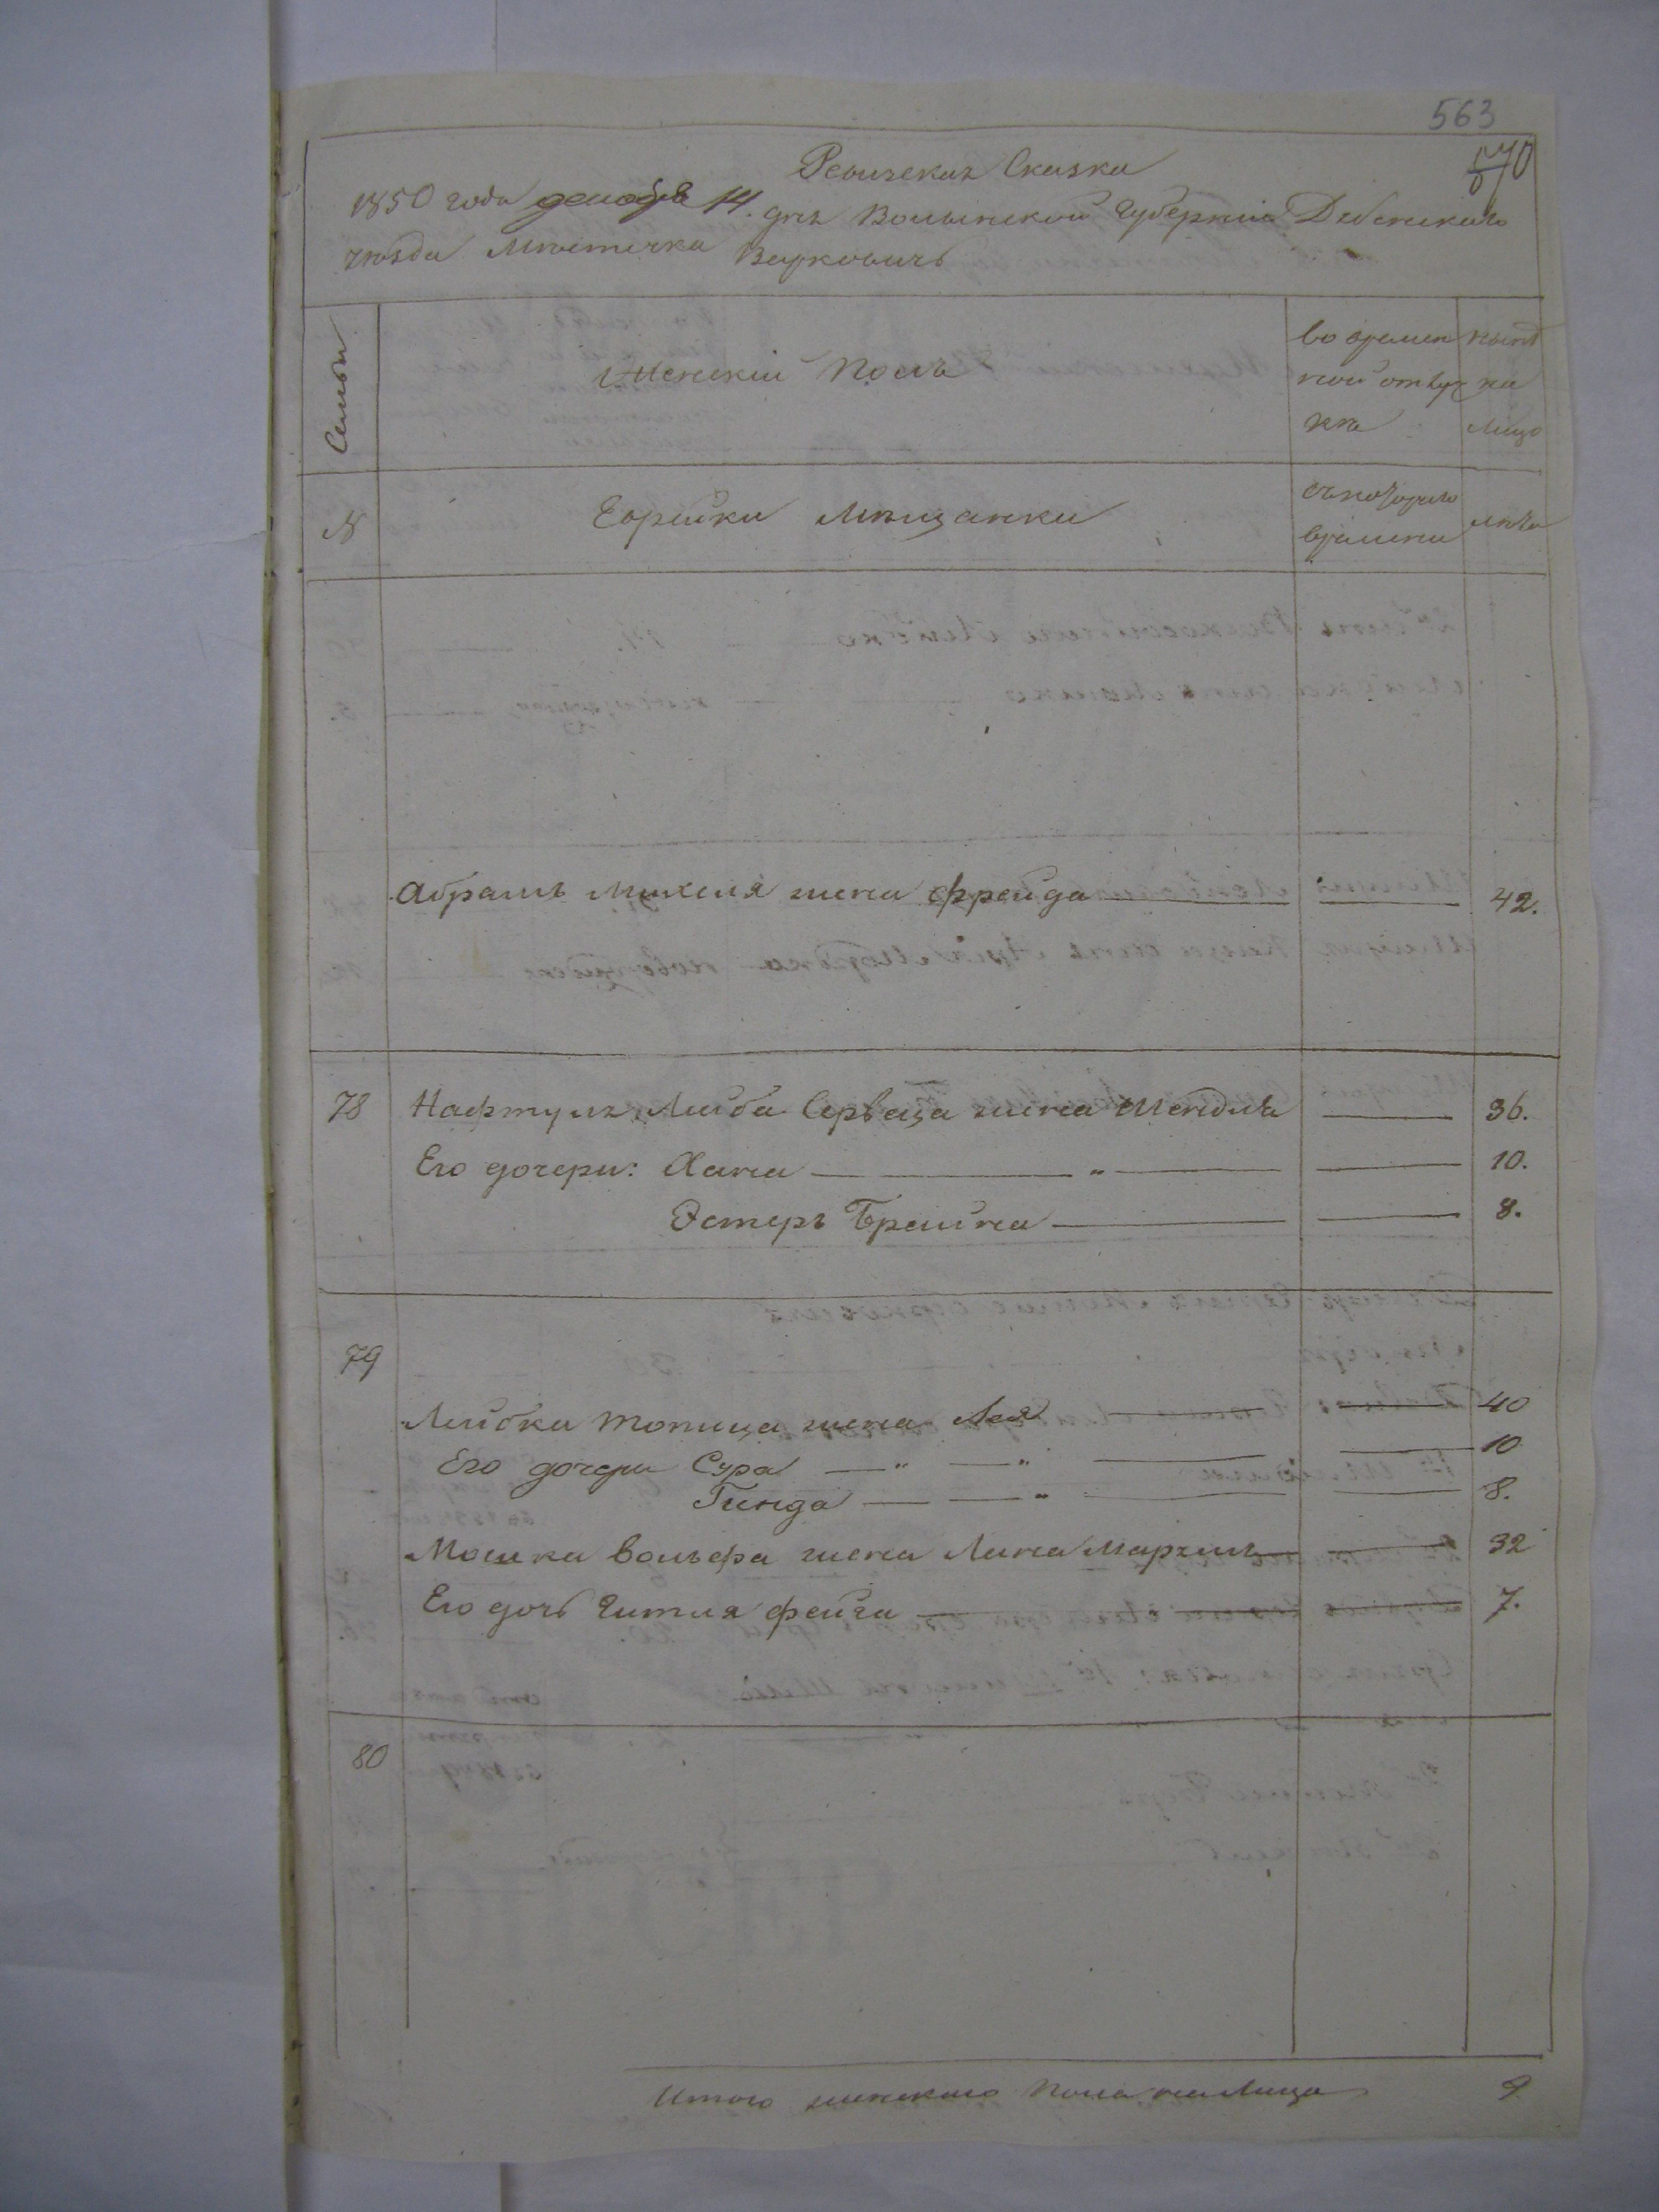 563
570
Ревизская Сказка
1850 года декабря 14. дня Волынской Губернии Дубенскаго
уезда Местечка Варковичь
Семьи
Женский Полъ
во времен
ной отлуч
ке
ныне
на
лицо
№
Еврейки Мещанки
съ котораго
времени
лета
Абрамъ Михеля жена Фрейда 42.
78 Нафтулъ Лейба Сервеца жена Мендля 36.
Его дочери: Хана " 10.
Эстеръ Брайна 8.
79
Лейбки Топица жена Лея 40
Его дочери Сура " " 10
Гинда " 8.
Мошка Вольфа жена Лина Мархиля 32
Его дочь Гитля Фейга " 7.
80
Итого женскаго Пола на Лицо 9